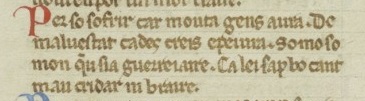 Per so sofrir car mouta gens aura. De
maluestar cades creis e peiura. So mo so
mon qu sia guerreiaire. Ca lei sap bo cant
m au cridar ni braire.